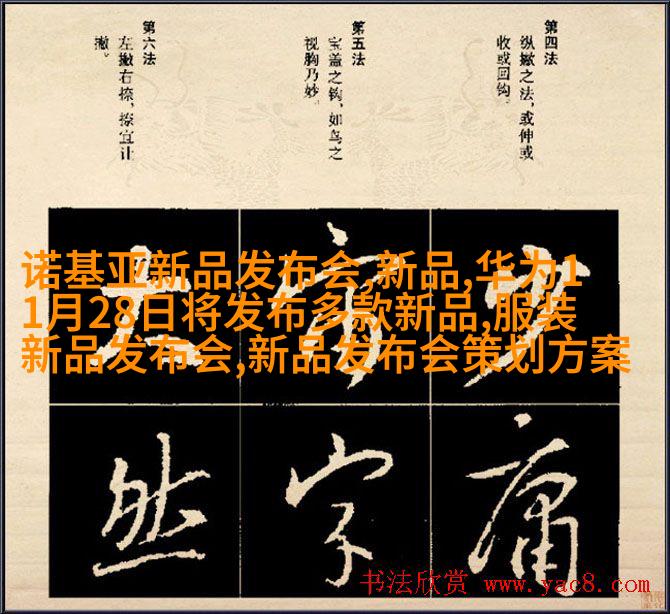 第四法
纵撇之法，或伸或
收或回钩。
第五法
宝盖之钩，如鸟之
视胸乃妙。
第六法
左撇右捺，捺宜让
撇。
诺基亚新品发布会,新品,华为1
1月28日将发布多款新品,服装
新品发布会,新品发布会策划方案
大 守 少
然 字 庸
书法欣赏 www.yac8.com